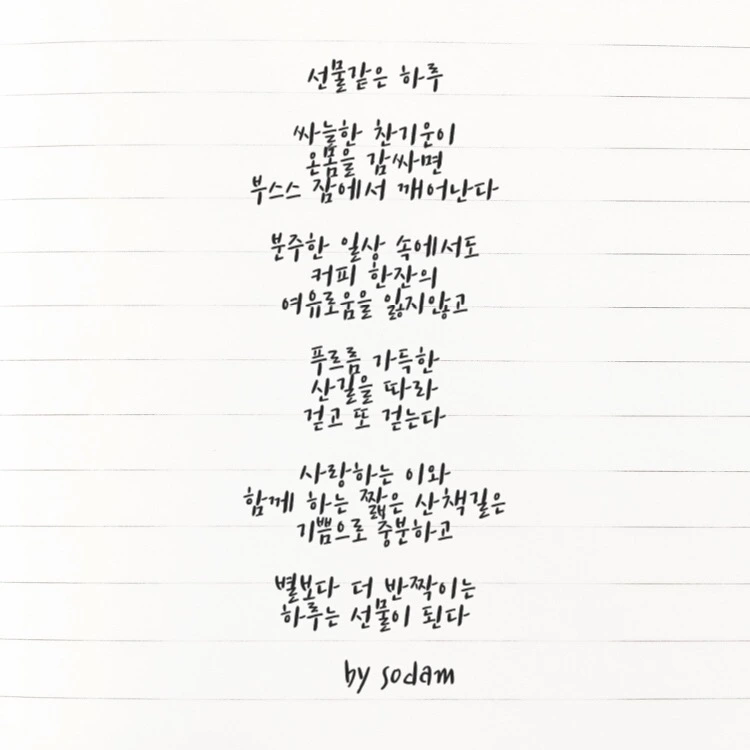 선물같은 하루
싸늘한 찬기운이
온몸을 감싸면
부스스 잠에서 깨어난다
분주한 일상 속에서도
커피 한잔의
여유로움을 잃지않고
푸르름 가득한
산길을 따라
걷고 또 걷는다
사랑하는 이와
함께 하는 짧은 산책길은
기쁨으로 충분하고
별보다 더 반짝이는
하루는 선물이 된다
by sodam